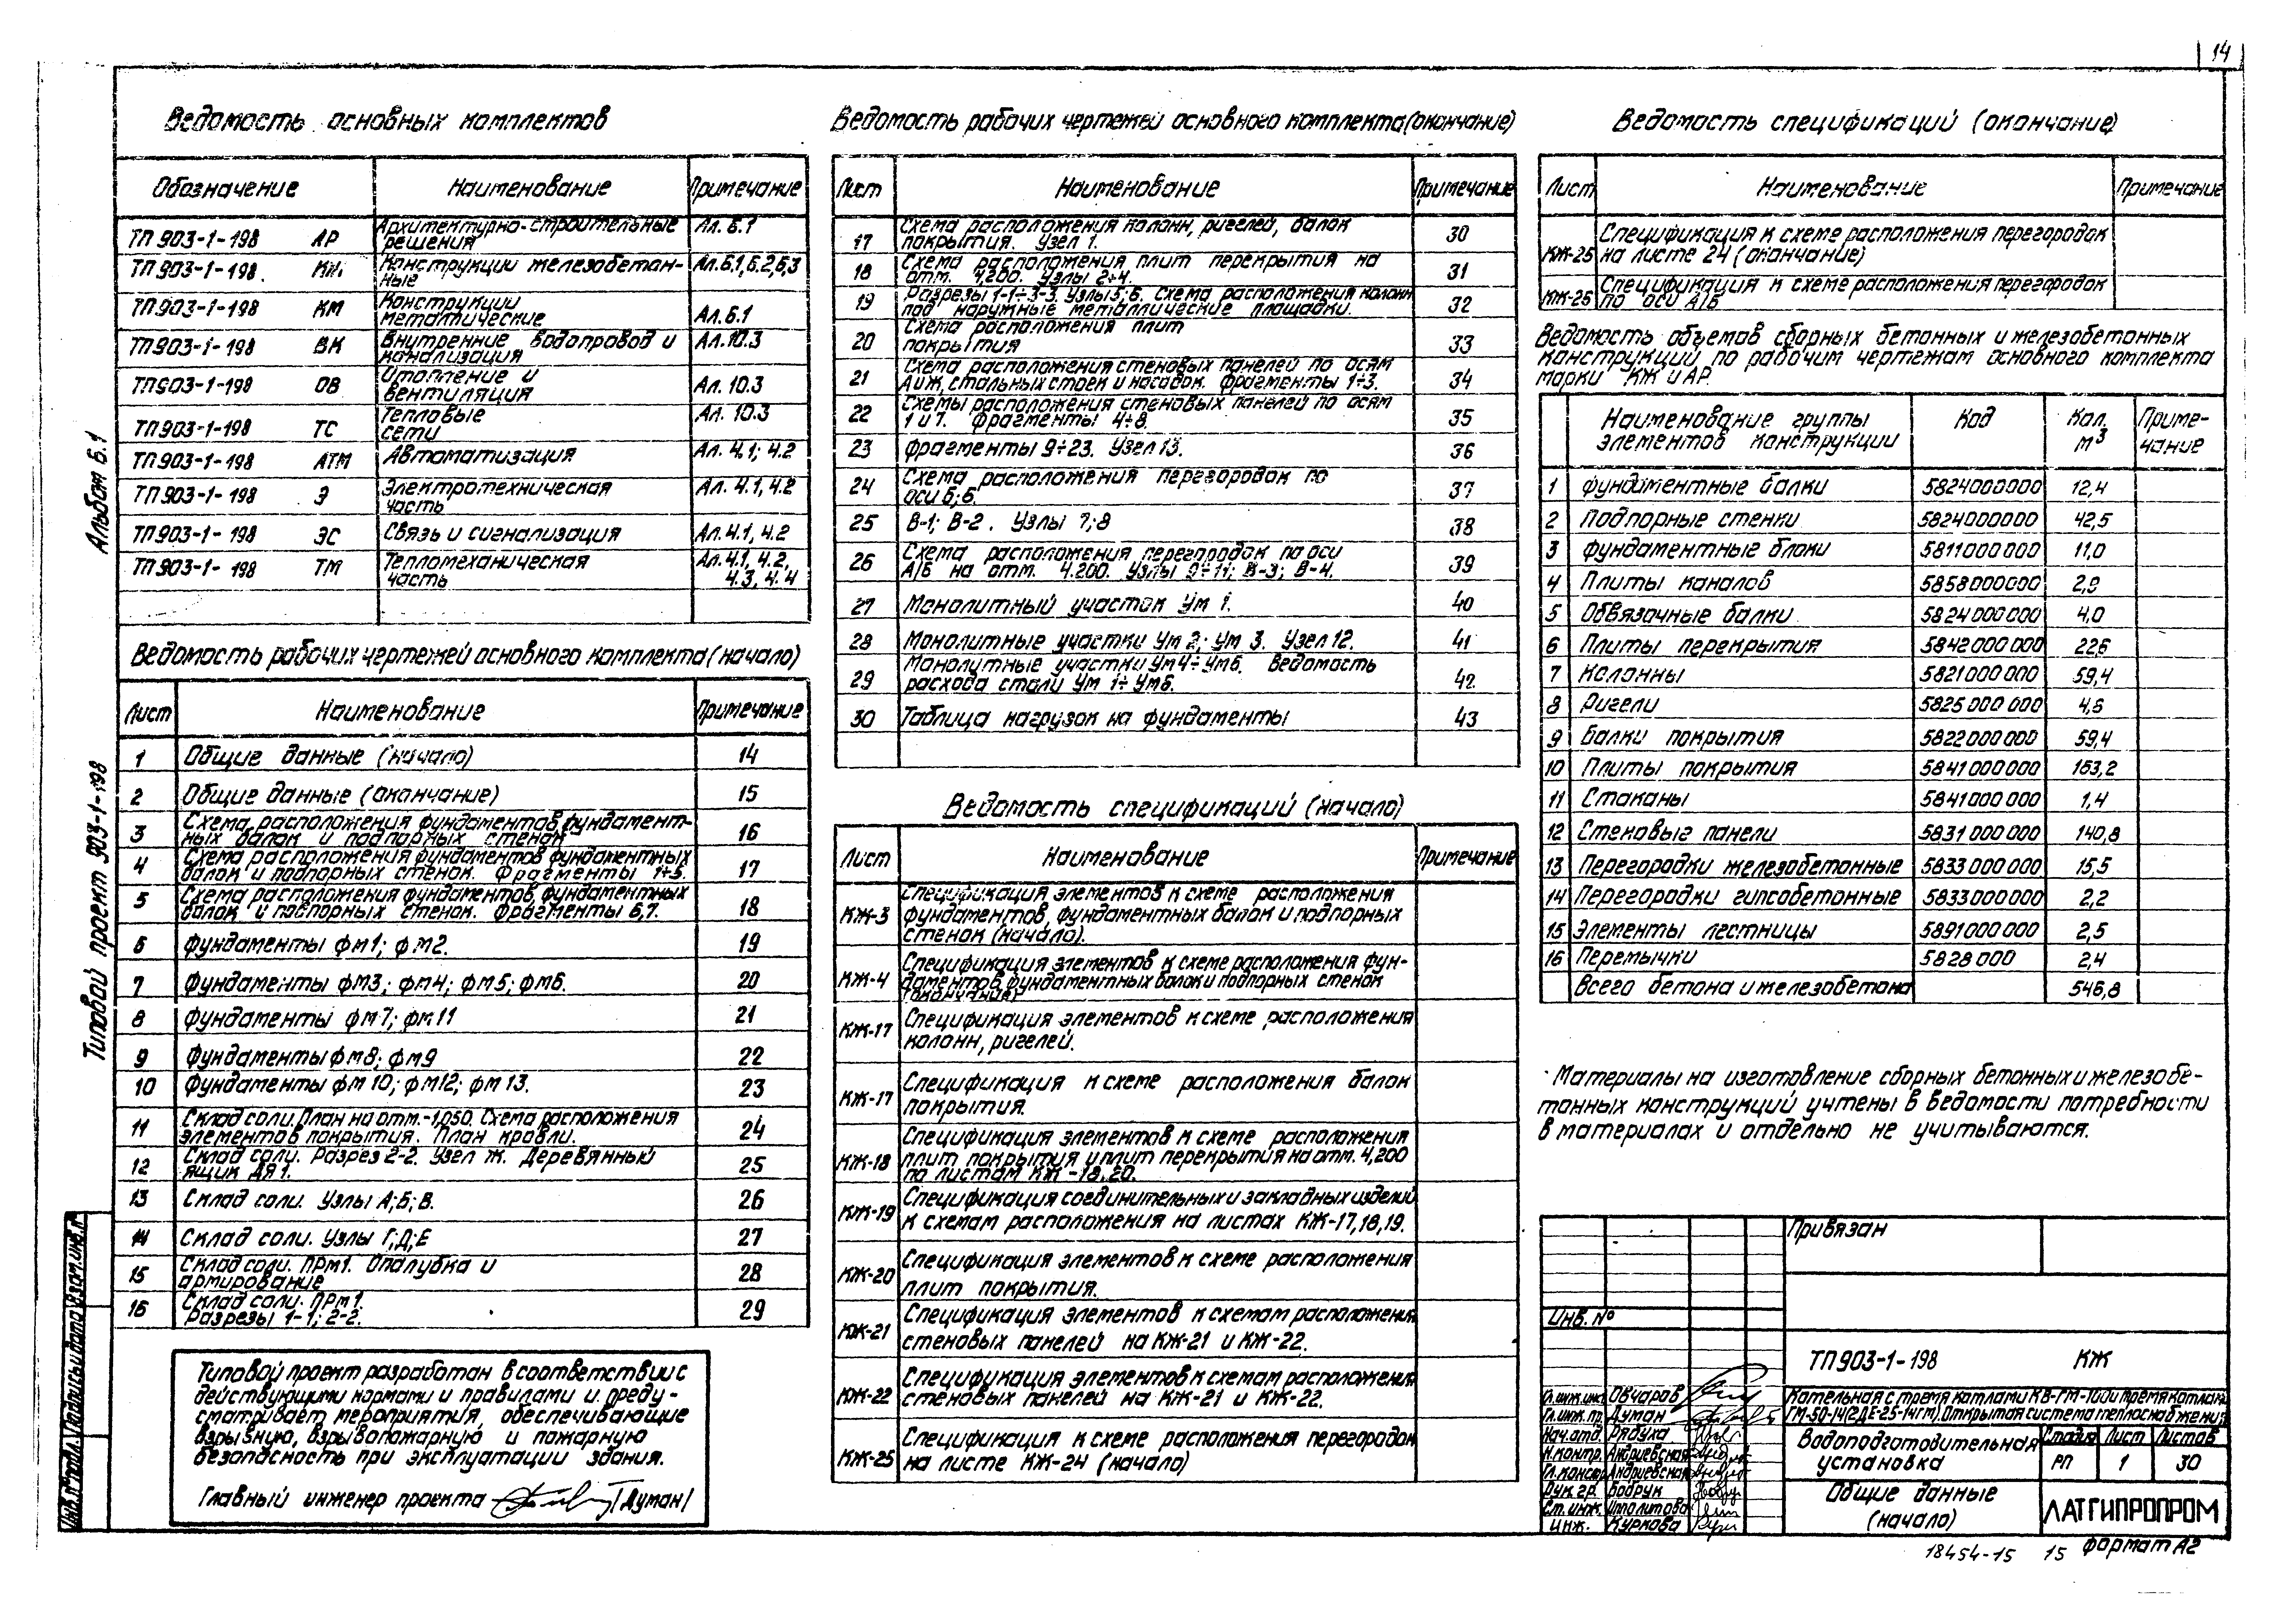 14
Ведомость основных комплектов
Обозначение Наименование Примечание
ТП 903-1-198 АР Архитектурно-строительные решения Ал. 6.1
ТП 903-1-198 КЖ Конструкции железобетон-
ные Ал. 6.1, 6.2, 6.3
ТП 903-1-198 КМ Конструкции металлические Ал. 6.1
ТП 903-1-198 ВК Внутренние водопровод и канализация Ал. 10.3
ТП 903-1-198 ОВ Отопление и вентиляция Ал. 10.3
ТП 903-1-198 ТС Тепловые сети Ал. 10.3
ТП 903-1-198 АТМ Автоматизация Ал. 4.1; 4.2
ТП 903-1-198 Э Электротехническая часть Ал. 4.1, 4.2
ТП 903-1-198 ЭС Связь и сигнализация Ал. 4.1, 4.2
ТП 903-1-198 ТМ Тепломеханическая часть Ал. 4.1, 4.2, 4.3, 4.4
Ведомость рабочих чертежей основного комплекта (начало)
Лист Наименование Примечание
1 Общие данные (начало) 14
2 Общие данные (окончание) 15
3 Схема расположения фундаментов, фундамент-
ных балок и подпорных стенок 16
4 Схема расположения фундаментов, фундаментных
балок и подпорных стенок. Фрагменты 1÷5. 17
5 Схема расположения фундаментов, фундаментных
балок и подпорных стенок. Фрагменты 6,7. 18
6 Фундаменты фм1; фм2. 19
7 Фундаменты фм3; фм4; фм5; фм6. 20
8 Фундаменты фм7; фм11 21
9 Фундаменты фм8; фм9 22
10 Фундаменты фм10; фм12; фм13. 23
11 Склад соли. План на отм. -1,050. Схема расположения
элементов покрытия. План кровли. 24
12 Склад соли. Разрез 2-2. Узел Ж. Деревянный
ящик ДЯ1. 25
13 Склад соли. Узлы А; Б; В. 26
14 Склад соли. Узлы Г; Д; Е 27
15 Склад соли. ПРм1. Опалубка и
армирование 28
16 Склад соли. ПРм1.
Разрезы 1-1; 2-2. 29
Типовой проект разработан в соответствии с
действующими нормами и правилами и преду-
сматривает мероприятия, обеспечивающие
взрывную, взрывопожарную и пожарную
безопасность при эксплуатации здания.
Главный инженер проекта /Думан/
Ведомость рабочих чертежей основного комплекта (окончание)
Лист Наименование Примечание
17 Схема расположения колонн, ригелей, балок
покрытия. Узел 1. 30
18 Схема расположения плит перекрытия на
отм. 4.200. Узлы 2÷4. 31
19 Разрезы 1-1÷3-3. Узлы 5; 6. Схема расположения колонн
под наружные металлические площадки. 32
20 Схема расположения плит
покрытия 33
21 Схема расположения стеновых панелей по осям
А и Ж, стальных стоек и насадок. Фрагменты 1÷3. 34
22 Схемы расположения стеновых панелей по осям
1 и 7. Фрагменты 4÷8. 35
23 Фрагменты 9÷23. Узел 13. 36
24 Схема расположения перегородок по
оси Б; 6. 37
25 В-1; В-2. Узлы 7; 8 38
26 Схема расположения перегородок по оси
А/Б на отм. 4.200. Узлы 9÷11; В-3; В-4. 39
27 Монолитный участок Ум 1. 40
28 Монолитные участки Ум 2; Ум 3. Узел 12. 41
29 Монолитные участки Ум4÷Ум6. Ведомость
расхода стали Ум 1÷Ум6. 42
30 Таблица нагрузок на фундаменты 43
Ведомость спецификаций (начало)
Лист Наименование Примечание
КЖ-3 Спецификация элементов к схеме расположения
фундаментов, фундаментных балок и подпорных
стенок (начало).
КЖ-4 Спецификация элементов к схеме расположения фун-
даментов, фундаментных балок и подпорных стенок
(окончание)
КЖ-17 Спецификация элементов к схеме расположения
колонн, ригелей.
КЖ-17 Спецификация к схеме расположения балок
покрытия.
КЖ-18 Спецификация элементов к схеме расположения
плит покрытия и плит перекрытия на отм. 4,200
по листам КЖ-18,20.
КЖ-19 Спецификация соединительных и закладных изделий
к схемам расположения на листах КЖ-17,18,19.
КЖ-20 Спецификация элементов к схеме расположения
плит покрытия.
КЖ-21 Спецификация элементов к схемам расположения
стеновых панелей на КЖ-21 и КЖ-22.
КЖ-22 Спецификация элементов к схемам расположения
стеновых панелей на КЖ-21 и КЖ-22.
КЖ-25 Спецификация к схеме расположения перегородок
на листе КЖ-24 (начало)
Ведомость спецификаций (окончание)
Лист Наименование Примечание
КЖ-25 Спецификация к схеме расположения перегородок
на листе 24 (окончание)
КЖ-26 Спецификация к схеме расположения перегородок
по оси А/Б
Ведомость объемов сборных бетонных и железобетонных
конструкций по рабочим чертежам основного комплекта
марки КЖ и АР.
Наименование группы элементов конструкции Код Кол. м³ Приме-
чание
1 Фундаментные балки 5824000000 12,4
2 Подпорные стенки 5824000000 42,5
3 Фундаментные блоки 5811000000 11,0
4 Плиты каналов 5858000000 2,9
5 Обвязочные балки 5824000000 4,0
6 Плиты перекрытия 5842000000 22,6
7 Колонны 5821000000 59,4
8 Ригели 5825000000 4,6
9 Балки покрытия 5822000000 59,4
10 Плиты покрытия 5841000000 163,2
11 Стаканы 5841000000 1,4
12 Стеновые панели 5831000000 140,8
13 Перегородки железобетонные 5833000000 15,5
14 Перегородки гипсобетонные 5833000000 2,2
15 Элементы лестницы 5891000000 2,5
16 Перемычки 5828000 2,4
Всего бетона и железобетона 546,8
Материалы на изготовление сборных бетонных и железобе-
тонных конструкций учтены в ведомости потребности
в материалах и отдельно не учитываются.
Привязан
Инв. №
ТП 903-1-198 КЖ
Гл. инж. инс. Овчаров
Гл. инж. пр. Думан
Нач. отд. Рядуха
Н. контр. Андриевская
Гл. констр. Андриевская
Рук. гр. Бобрук
Ст. инж. Ипполитова
Инж. Куркова
Котельная с тремя котлами КВ-ГМ-100 и тремя котлами
ГМ-50-14(2ДЕ-25-14ГМ). Открытая система теплоснабжения
Водоподготовительная
установка
Стадия Лист Листов
РП 1 30
Общие данные
(начало)
ЛАТГИПРОПРОМ
18454-15 15 Формат А2
Альбом 6.1
Типовой проект 903-1-198
Инв.№ подл. Подпись и дата Взам.инв.№